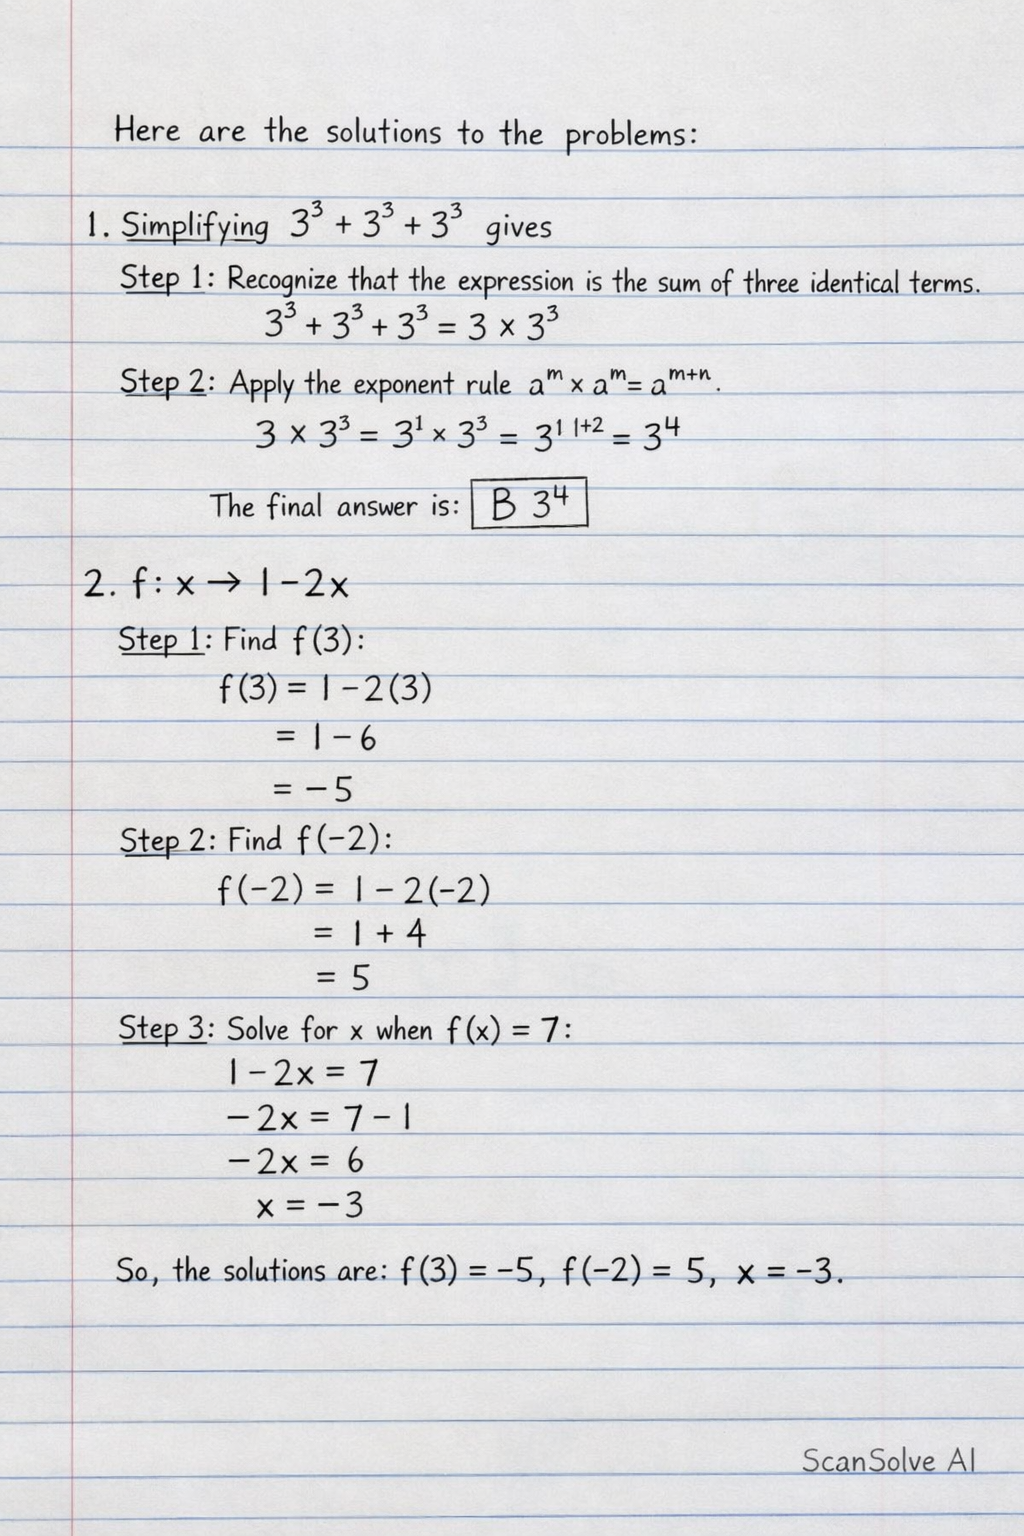 Here are the solutions to the problems:
1. Simplifying 3³ + 3³ + 3³ gives
Step 1: Recognize that the expression is the sum of three identical terms.
3³ + 3³ + 3³ = 3 × 3³
Step 2: Apply the exponent rule aᵐ × aᵐ = aᵐ⁺ⁿ.
3 × 3³ = 3¹ × 3³ = 3¹ ¹⁺² = 3⁴
The final answer is: B 3⁴
2. f: x → 1 − 2x
Step 1: Find f(3):
f(3) = 1 − 2(3)
= 1 − 6
= −5
Step 2: Find f(−2):
f(−2) = 1 − 2(−2)
= 1 + 4
= 5
Step 3: Solve for x when f(x) = 7:
1 − 2x = 7
−2x = 7 − 1
−2x = 6
x = −3
So, the solutions are: f(3) = −5, f(−2) = 5, x = −3.
ScanSolve AI